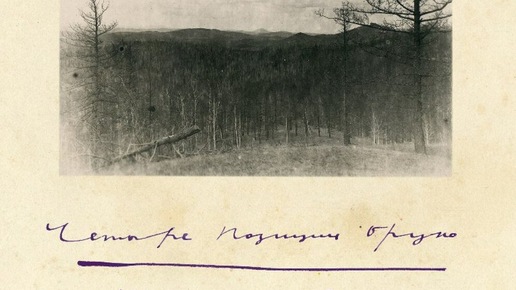 Четыре позиции Бруно